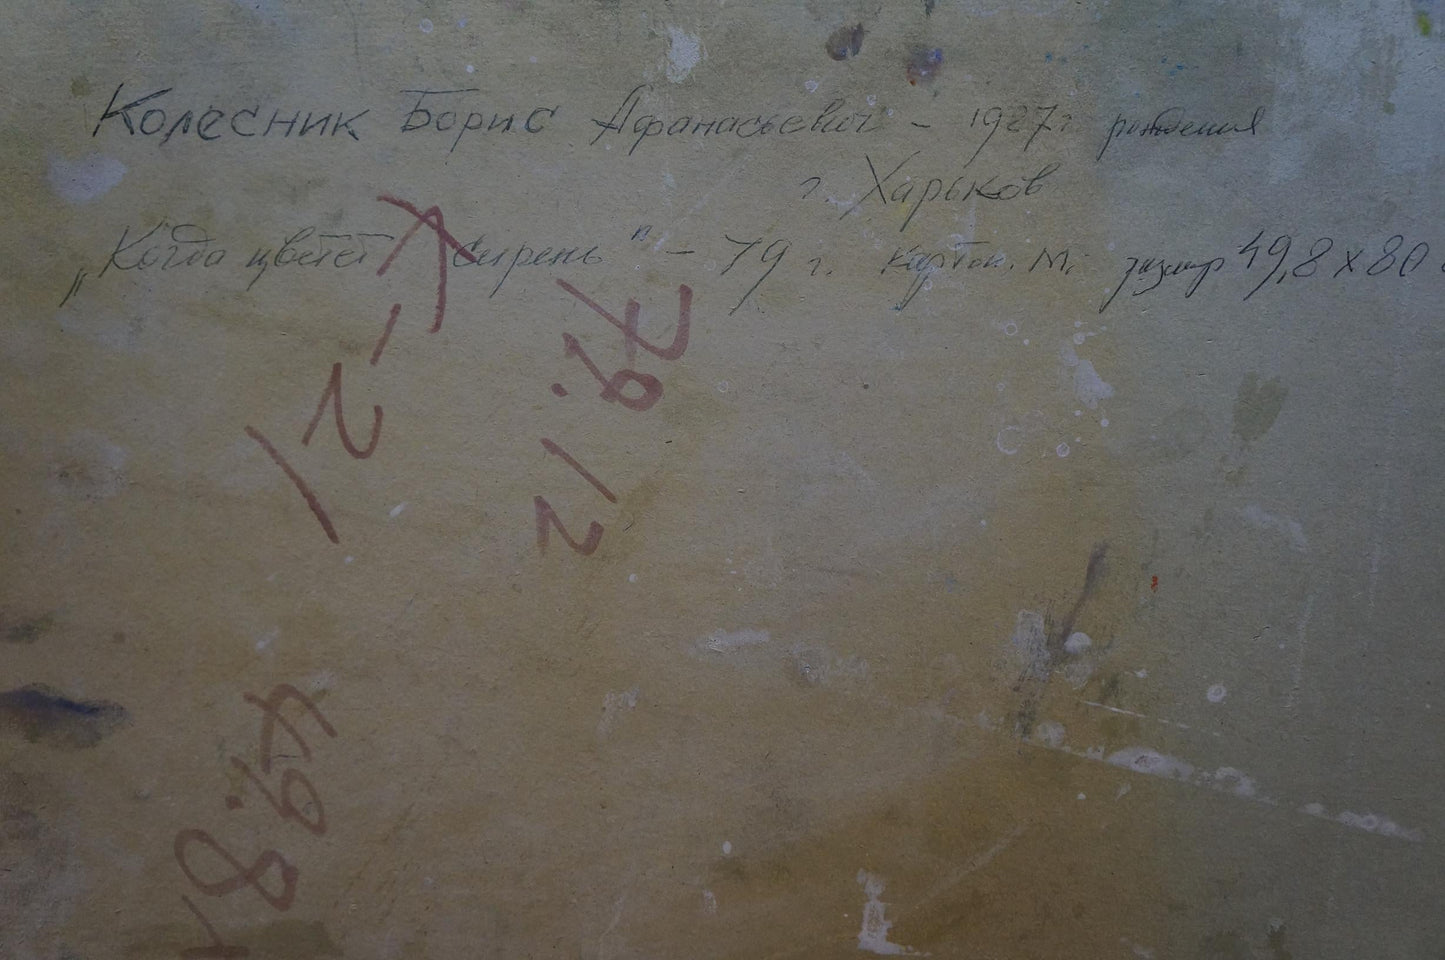 Колесник Борис Афанасьевич - 1927г рождения
г. Харьков
„Когда цветет сирень" - 79 г. картон. м. размер 49,8 х 80
79,12
49,8